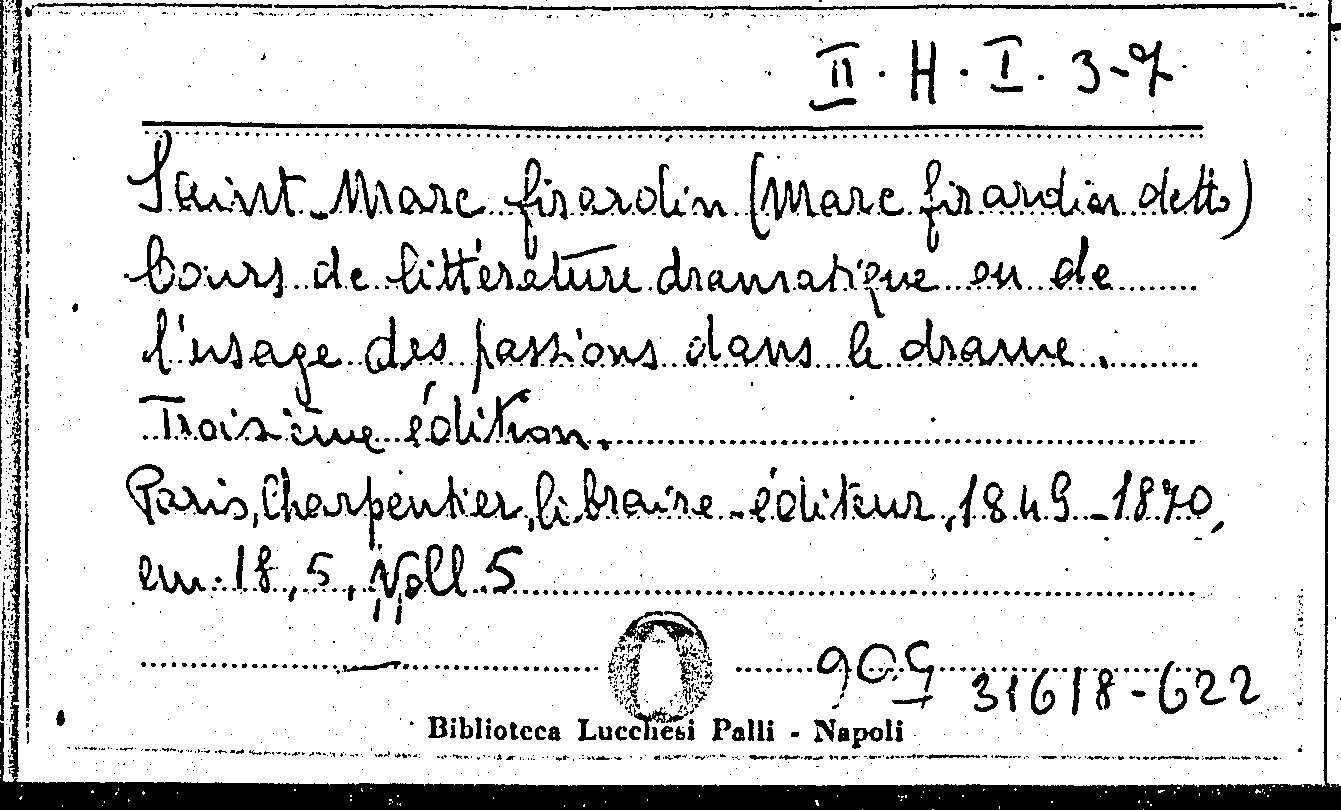 II. H. I. 3-7
Saint-Marc Girardin (Marc Girardin detto)
Cours de littérature dramatique ou de
l'usage des passions dans le drame.
Troisième édition.
Paris, Charpentier, libraire-éditeur, 1849-1870,
cm. 18,5, Voll. 5
31618-622
Biblioteca Lucchesi Palli - Napoli